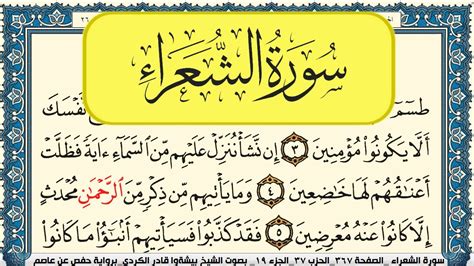 سُورَةُ الشُّعَرَاءِ
طسٓمٓ نَّفْسَكَ
أَلَّا يَكُونُوا۟ مُؤْمِنِينَ ٣ إِن نَّشَأْ نُنَزِّلْ عَلَيْهِم مِّنَ ٱلسَّمَآءِ ءَايَةً فَظَلَّتْ
أَعْنَٰقُهُمْ لَهَا خَٰضِعِينَ ٤ وَمَا يَأْتِيهِم مِّن ذِكْرٍ مِّنَ ٱلرَّحْمَٰنِ مُحْدَثٍ
إِلَّا كَانُوا۟ عَنْهُ مُعْرِضِينَ ٥ فَقَدْ كَذَّبُوا۟ فَسَيَأْتِيهِمْ أَنۢبَٰٓؤُا۟ مَا كَانُوا۟
سورة الشعراء _ الصفحة ٣٦٧_ الحزب ٣٧_ الجزء ١٩_ بصوت الشيخ بيشةوا قادر الكردي_ برواية حفص عن عاصم